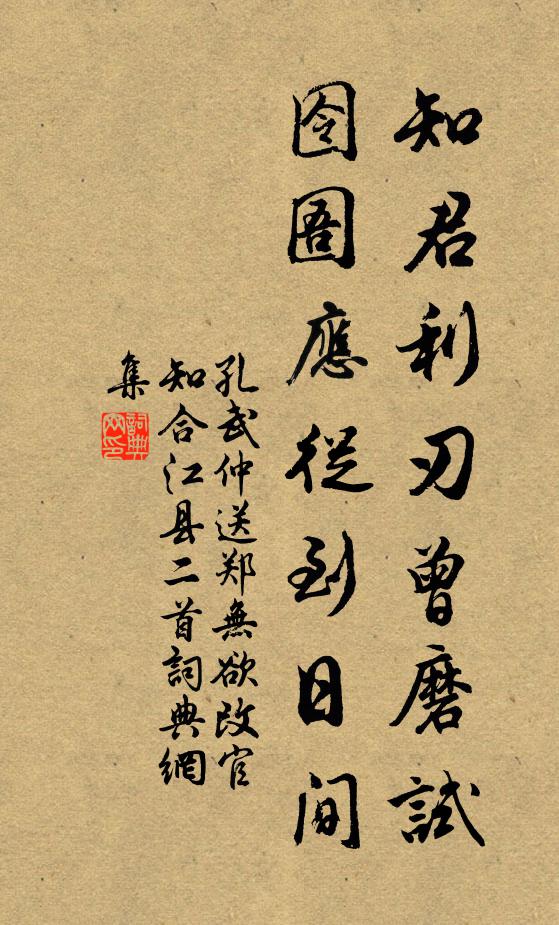 知君利刃曾磨試
囹圄應從到日間
孔武仲送郑無欲改官
知合江县二首詞典網
集
詞典网印